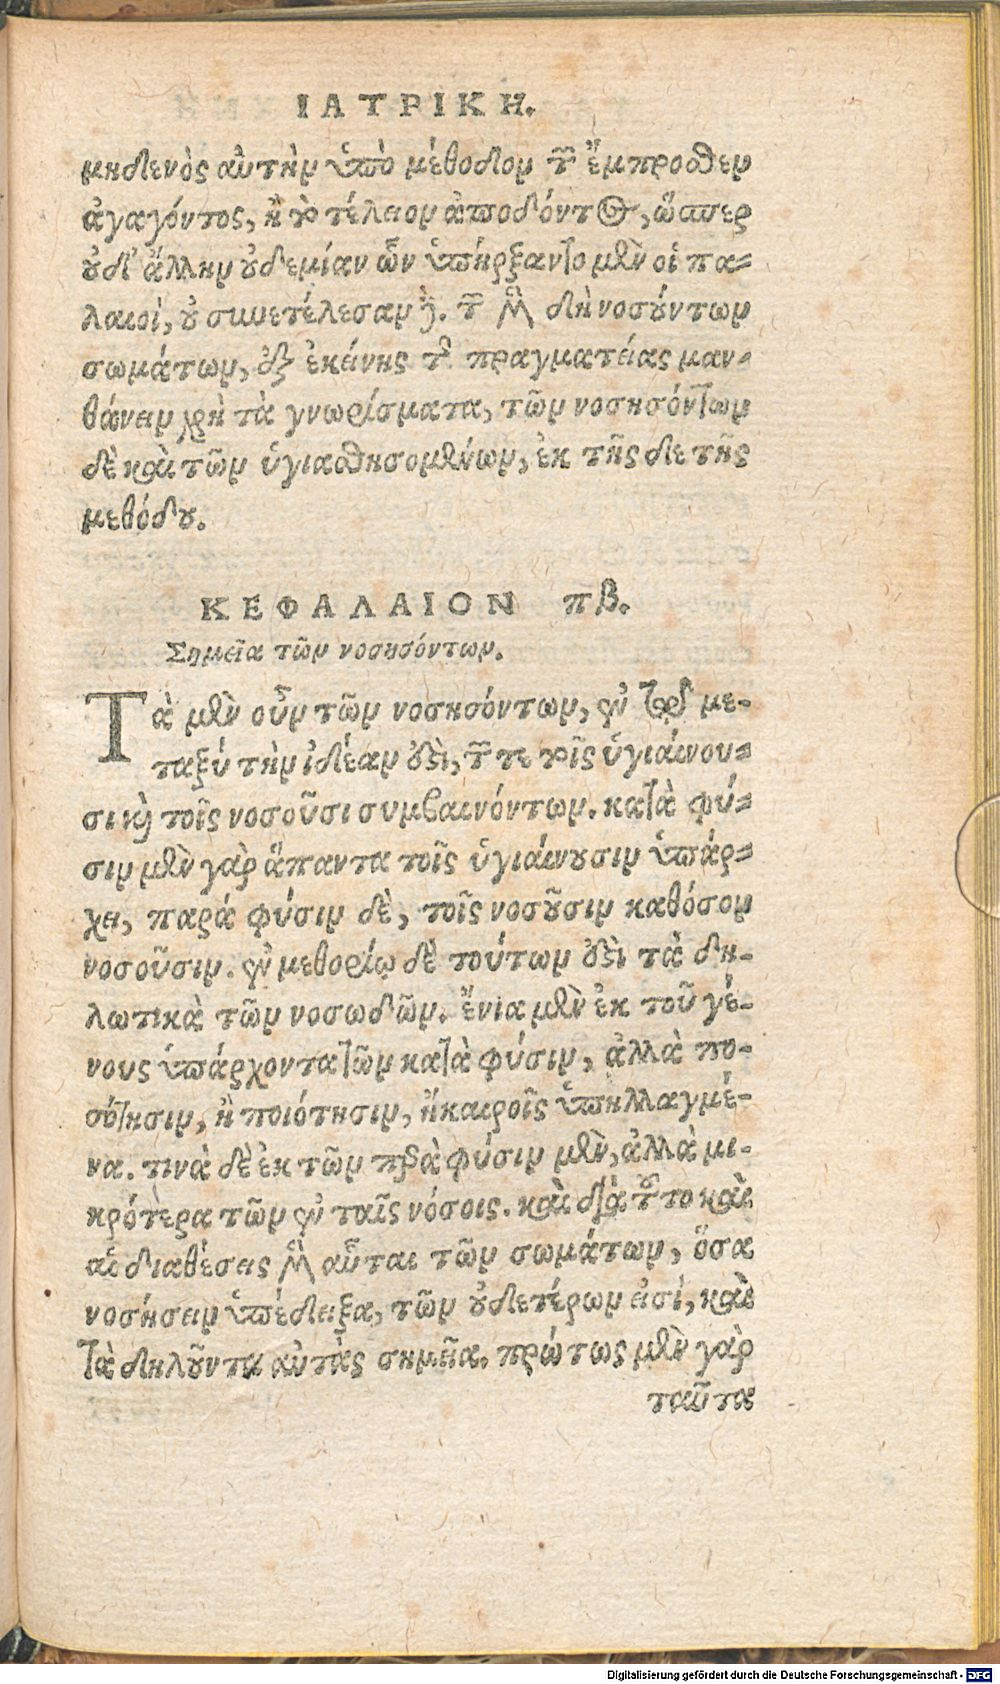 ΙΑΤΡΙΚΗ.
μηδενὸς αὐτὴν ὑπὸ μέθοδον τῶν ἔμπροσθεν
ἀγαγόντος, ἢ τὸ τέλειον ἀποδόντος, ὥσπερ
οὐδ' ἄλλην οὐδεμίαν ὧν ὑπήρξαντο μὲν οἱ πα-
λαιοὶ, οὐ συνετέλεσαν δέ. τῶν μὲν δὴ νοσούντων
σωμάτων, ἐξ ἐκείνης τῆς πραγματείας μαν-
θάνειν χρὴ τὰ γνωρίσματα, τῶν νοσησόντων
δὲ καὶ τῶν ὑγιασθησομένων, ἐκ τῆς δε τῆς
μεθόδου.
ΚΕΦΑΛΑΙΟΝ πβ.
Σημεῖα τῶν νοσησόντων.
Τὰ μὲν οὖν τῶν νοσησόντων, ἐν τῷ με-
ταξύ τὴν ἰδέαν ἐστὶ, τῶν τε τοῖς ὑγιαίνου-
σι καὶ τοῖς νοσοῦσι συμβαινόντων. κατὰ φύ-
σιν μὲν γὰρ ἅπαντα τοῖς ὑγιαίνουσιν ὑπάρ-
χει, παρά φύσιν δὲ, τοῖς νοσοῦσιν καθόσον
νοσοῦσιν. ἐν μεθορίῳ δὲ τούτων ἐστὶ τὰ δη-
λωτικὰ τῶν νοσωδῶν. ἔνια μὲν ἐκ τοῦ γέ-
νους ὑπάρχοντα τῶν κατὰ φύσιν, ἀλλὰ πο-
σότησιν, ἢ ποιότησιν, ἢ καιροῖς ὑπηλλαγμέ-
να. τινὰ δὲ ἐκ τῶν παρὰ φύσιν μὲν, ἀλλὰ μι-
κρότερα τῶν ἐν ταῖς νόσοις. καὶ διὰ τοῦτο καὶ
αἱ διαθέσεις μὲν αὗται τῶν σωμάτων, ὅσα
νοσήσειν ὑπέδειξα, τῶν οὐδετέρων εἰσί, καὶ
τὰ δηλοῦντα αὐτὰς σημεῖα. πρώτως μὲν γὰρ
ταῦτα
Digitalisierung gefördert durch die Deutsche Forschungsgemeinschaft - DFG